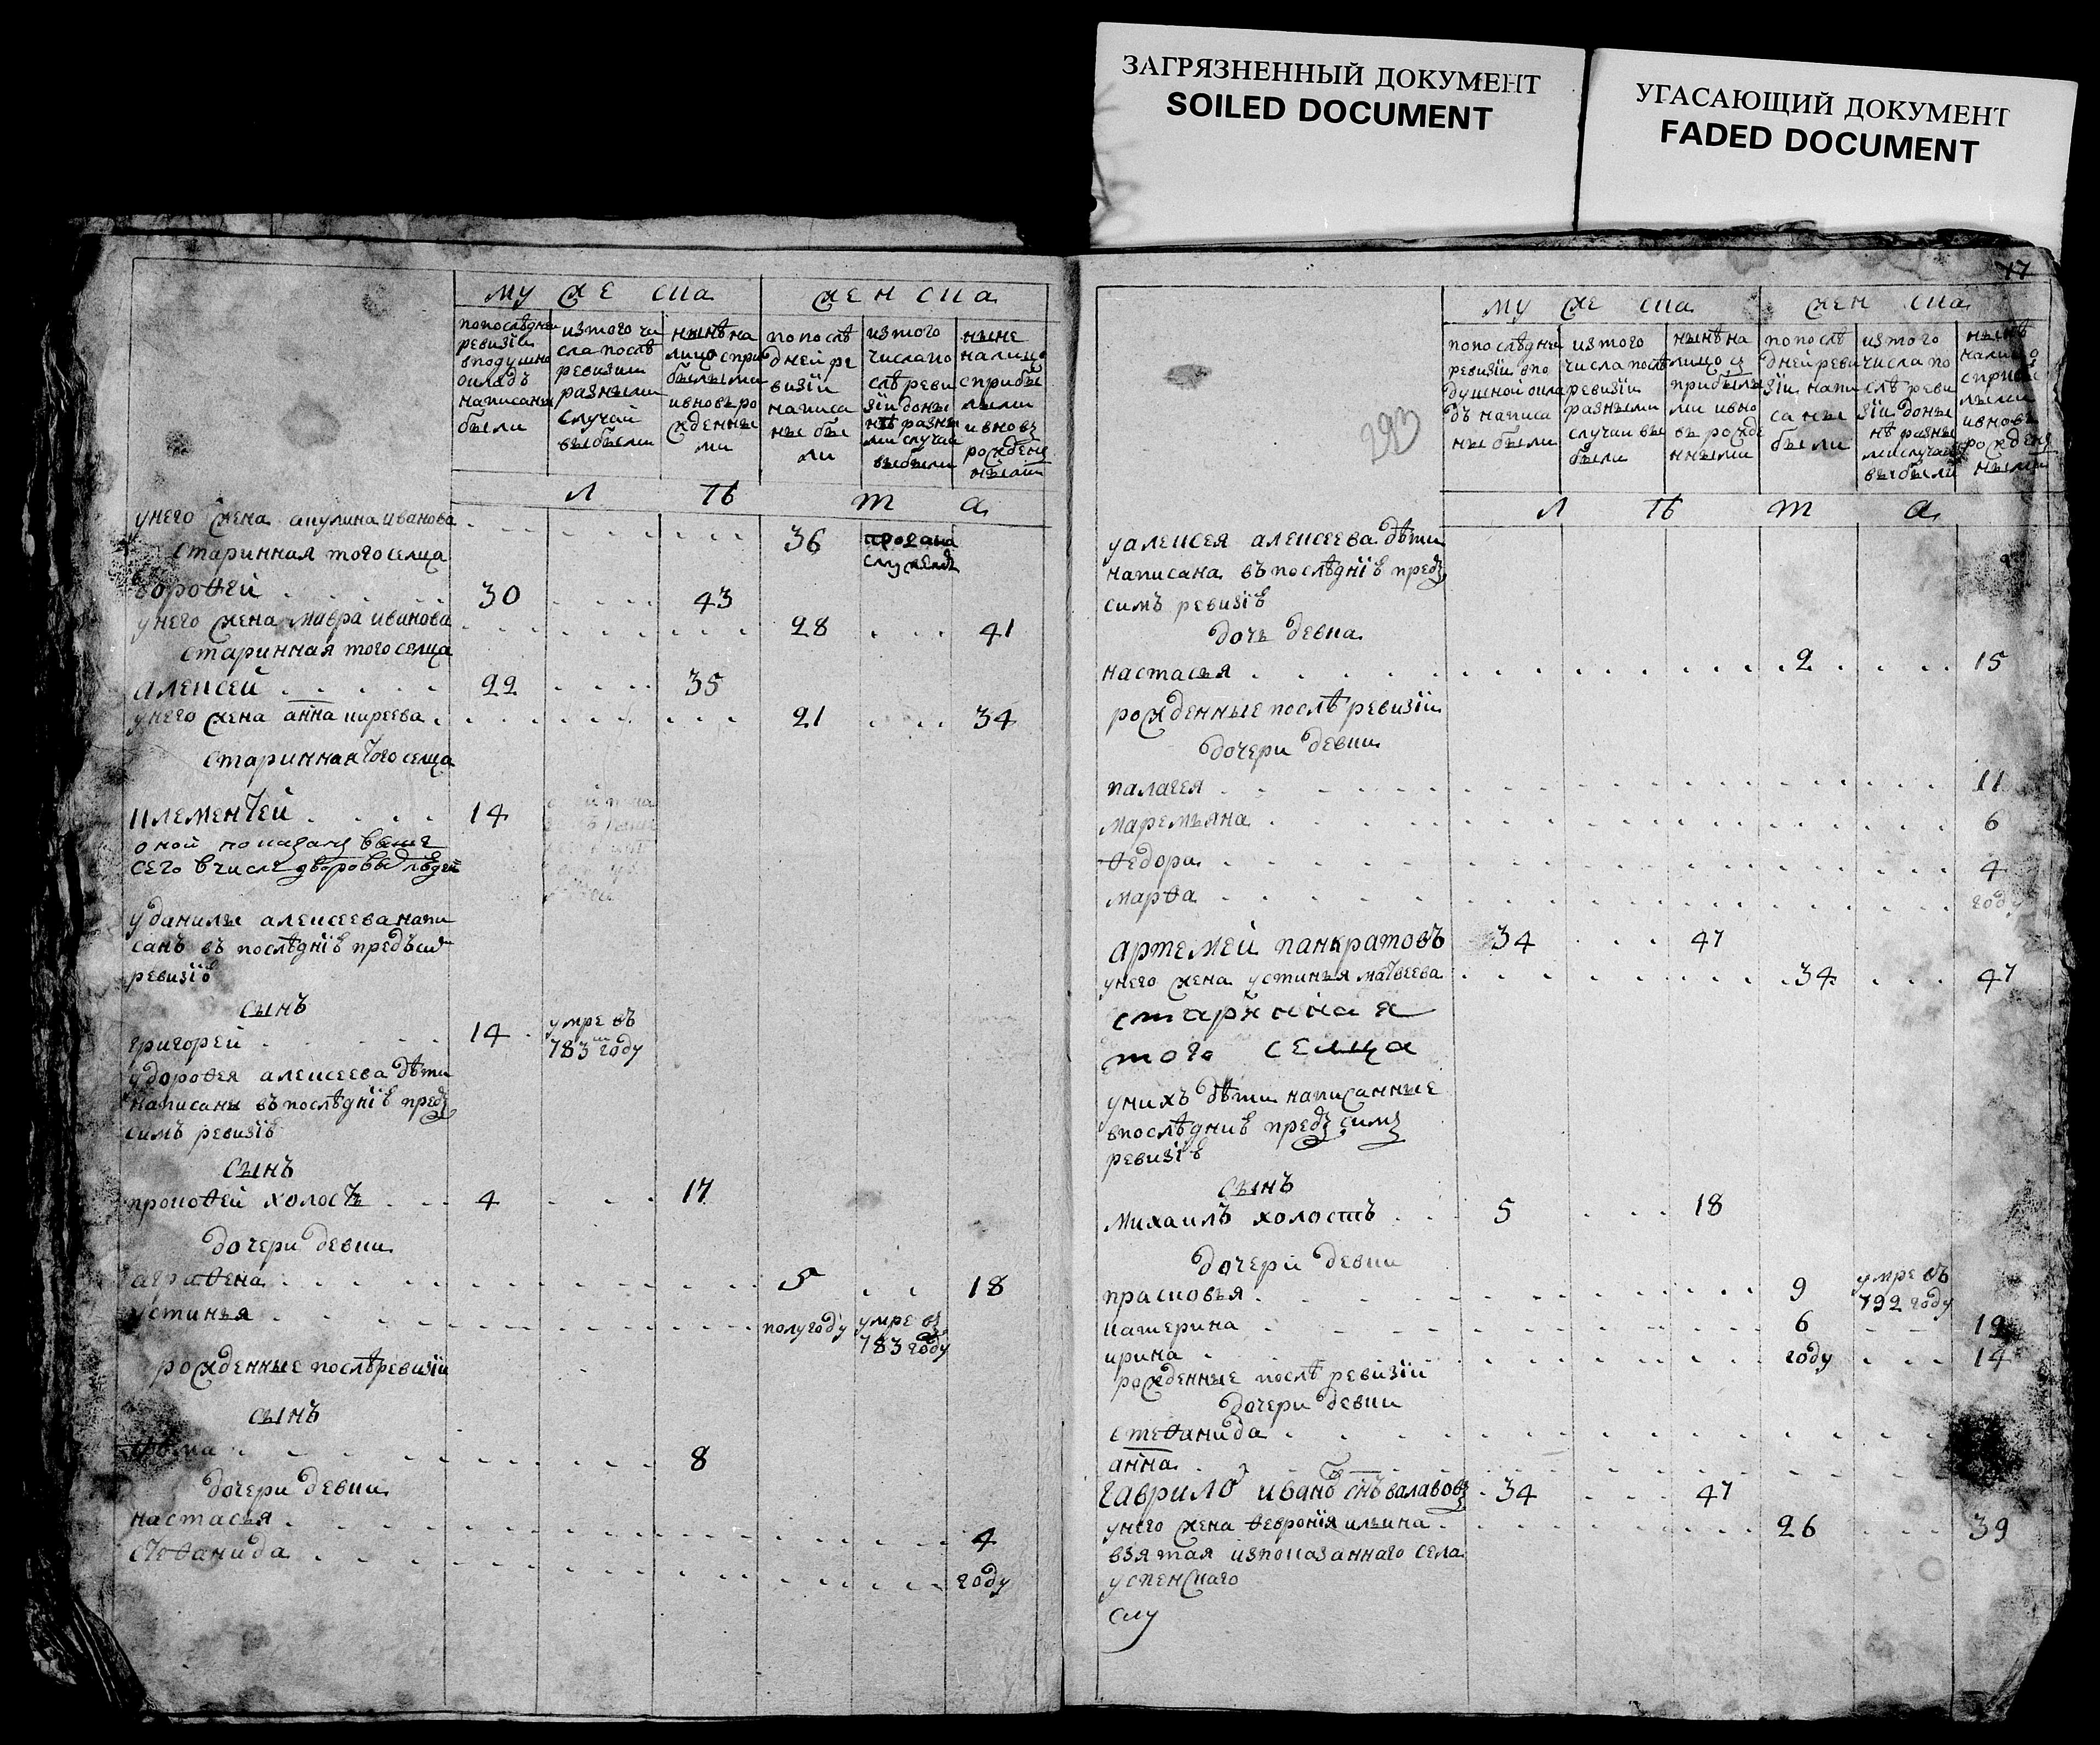 ЗАГРЯЗНЕННЫЙ ДОКУМЕНТ
SOILED DOCUMENT
УГАСАЮЩИЙ ДОКУМЕНТ
FADED DOCUMENT
мужеска женска
попослѣдней ревизiи вподушной окладъ написаны были
изтого числа послѣ ревизии разными случаи выбыли
нынѣ на лицо сприбылыми ивновь рожденными
по послѣдней ревизiи написаны были
изтого числапослѣ ревизiи доныне разными случаи выбыли
ныне налицо сприбылыми ивновь рожденными
лѣта
унего жена акулина иванова 36
старинная того селца
дорофей 30 43
унего жена мавра ивинова 28 41
старинная того селца
алексей 22 35
унего жена анна киреева 21 34
стариннаятого селца
клементей 14
оной показанъ выше
сего вчисле дворовыхъ людей
уданилы алексеева напи
санъ въ послѣднiѣ предъсимъ
ревизiѣ
сынъ
григорей 14 умре въ
783м году
удорофея алексеева дѣти
написаны въ послѣднiѣ предъ
симъ ревизiѣ
сынъ
прокофей холостъ 4 17
дочери девки
аграфена 5 18
устинья полугоду умре въ
783 году
рожденные послѣревизiи
сынъ
фома 8
дочери девки
настасья 4
стефанида году
17
293
муже ска жен ска
попослѣдней ревизiи впо душной окладъ написаны были
изтого числа послѣ ревизiи разными случаи выбыли
нынѣ на лицо съ прибылыми ивновь рожденными
попослѣдней ревизiи написаны были
изтого числа послѣ ревизiи донынѣ разными случаи выбыли
нынѣ налицо сприбылыми ивновь рожденными
лѣта
уалексея алексеева дѣти
написана въ послѣднiѣ предъ
симъ ревизiѣ
дочь девка
настасья 2 15
рожденные послѣ ревизiи
дочери девки
палагея 11
маремьяна 6
федора 4
марфа году
артемей панкратовъ 34 47
унего жена устинья матвеева 34 47
старинная
того селца
унихъ дѣти написанные
впослѣдниѣ предъ симъ
ревизiѣ
сынъ
михаилъ холостъ 5 18
дочери девки
прасковья 9 умре въ
792 году
катерина 6 19
ирина году 14
рожденные послѣ ревизiи
дочери девки
стефанида
анна
гаврило ивановъ снъ валавовъ 34 47
унего жена февронiя ильина 26 39
взятая изпоказаннаго села
успенскаго
ску